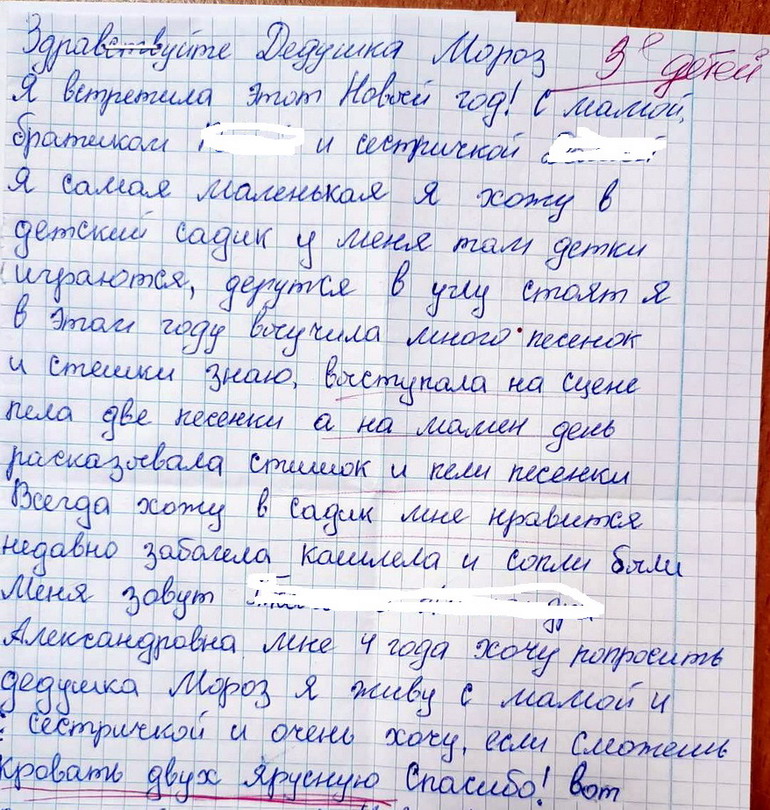 Здравствуйте Дедушка Мороз 3е детей
Я встретила этот Новый год! С мамой,
братиком и сестричкой
Я самая маленькая я хожу в
детский садик у меня там детки
играются, дерутся в углу стоят я
в этом году выучила много песенок
и стешки знаю, выступала на сцене
пела две песенки а на мамен день
расказывала стишок и пели песенки
Всегда хожу в садик мне нравится
недавно забагела кашлела и сопли были
Меня завут
Александравна мне 4 года хочу попросить
дедушка Мороз я живу с мамой и
сестричкой и очень хочу, если сможешь
кровать двух ярусную Спасибо! вот